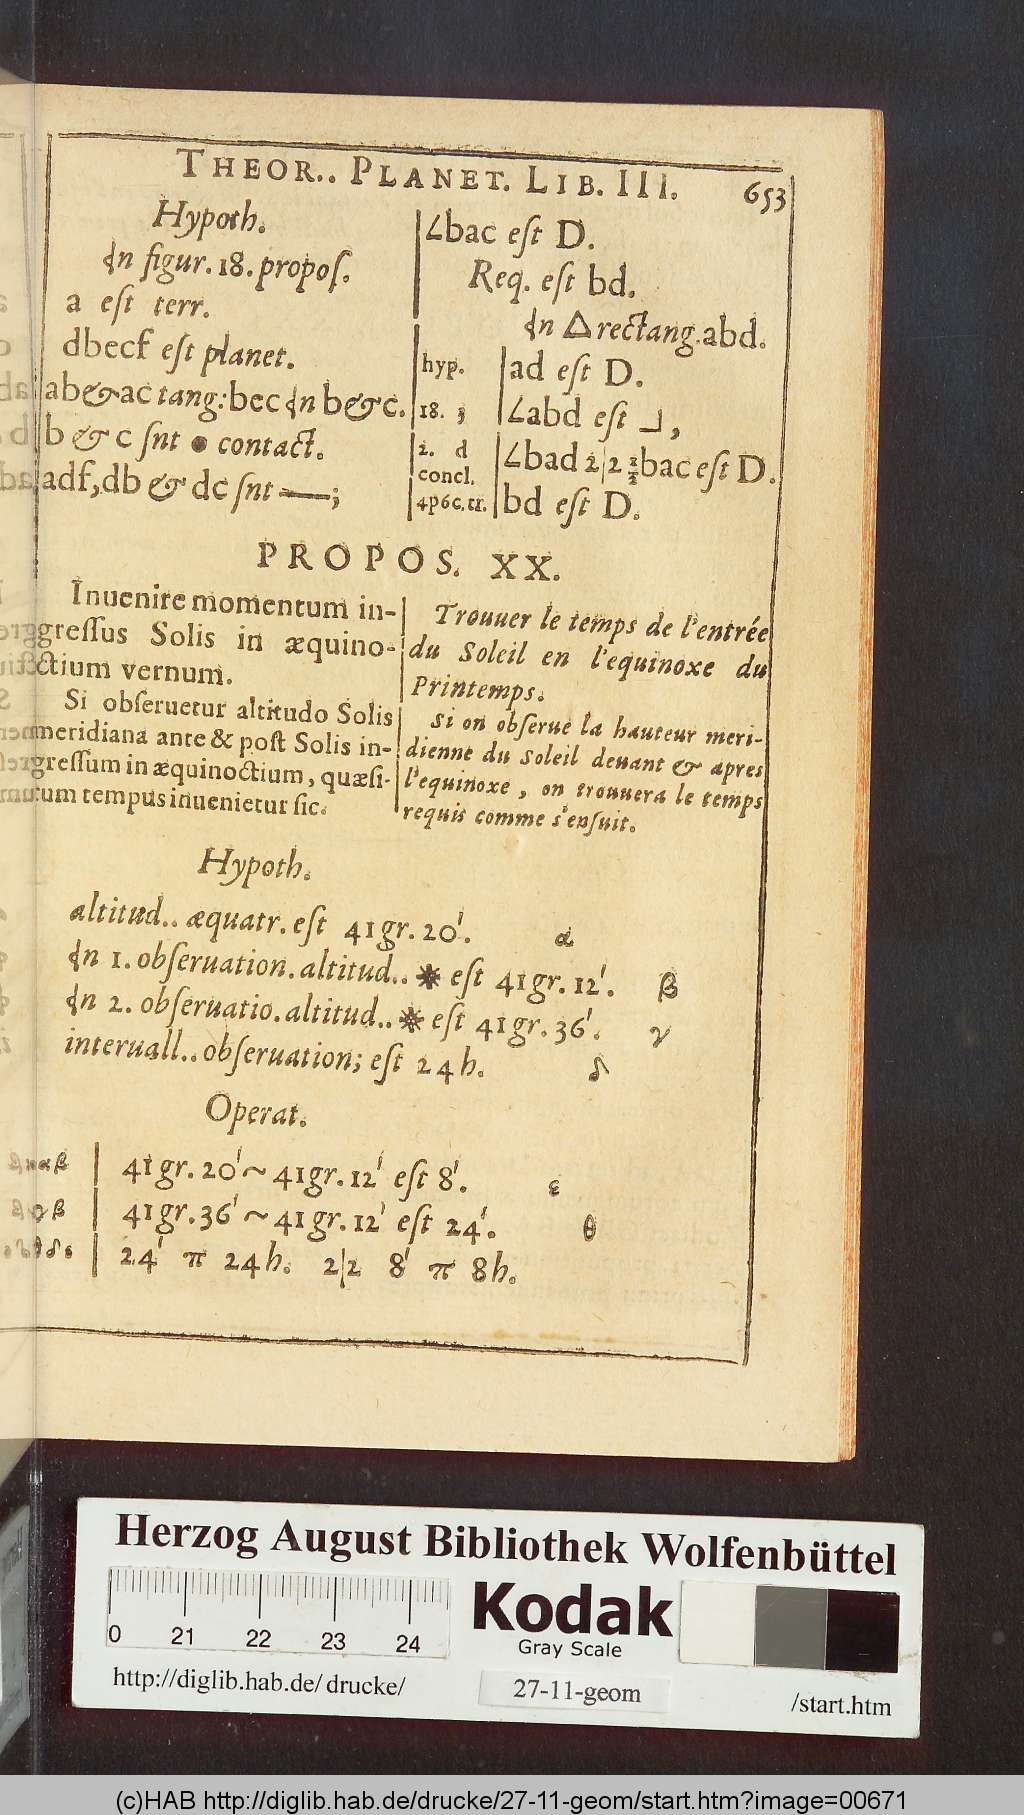 THEOR.. PLANET. LIB. III. 653
Hypoth.
In figur. 18. propos.
a est terr.
dbecf est planet.
ab & ac tang: bec In b & c.
b & c snt ● contact.
adf, db & dc snt —;
∠bac est D.
Req. est bd.
In △ rectang. abd.
hyp. | ad est D.
18. ; | ∠abd est ⅃,
2. d concl. | ∠bad 2|2 ½bac est D.
4p6c.tr. | bd est D.
PROPOS. XX.
Inuenire momentum in-
gressus Solis in æquino-
ctium vernum.
Si obseruetur altitudo Solis
meridiana ante & post Solis in-
gressum in æquinoctium, quæsi-
tum tempus inuenietur sic.
Trouuer le temps de l'entrée
du Soleil en l'equinoxe du
Printemps.
Si on obserue la hauteur meri-
dienne du Soleil deuant & apres
l'equinoxe, on trouuera le temps
requis comme s'ensuit.
Hypoth.
altitud.. æquatr. est 41 gr. 20'. α
In 1. obseruation. altitud.. ✹ est 41 gr. 12'. β
In 2. obseruatio. altitud.. ✹ est 41 gr. 36'. γ
interuall.. obseruation; est 24 h. δ
Operat.
α β | 41 gr. 20' ~ 41 gr. 12' est 8'. ε
γ β | 41 gr. 36' ~ 41 gr. 12' est 24'. θ
θ δ ε | 24' π 24 h. 2|2 8' π 8 h.
Herzog August Bibliothek Wolfenbüttel
0 21 22 23 24
Kodak
Gray Scale
http://diglib.hab.de/ drucke/
27-11-geom
/start.htm
(c)HAB http://diglib.hab.de/drucke/27-11-geom/start.htm?image=00671